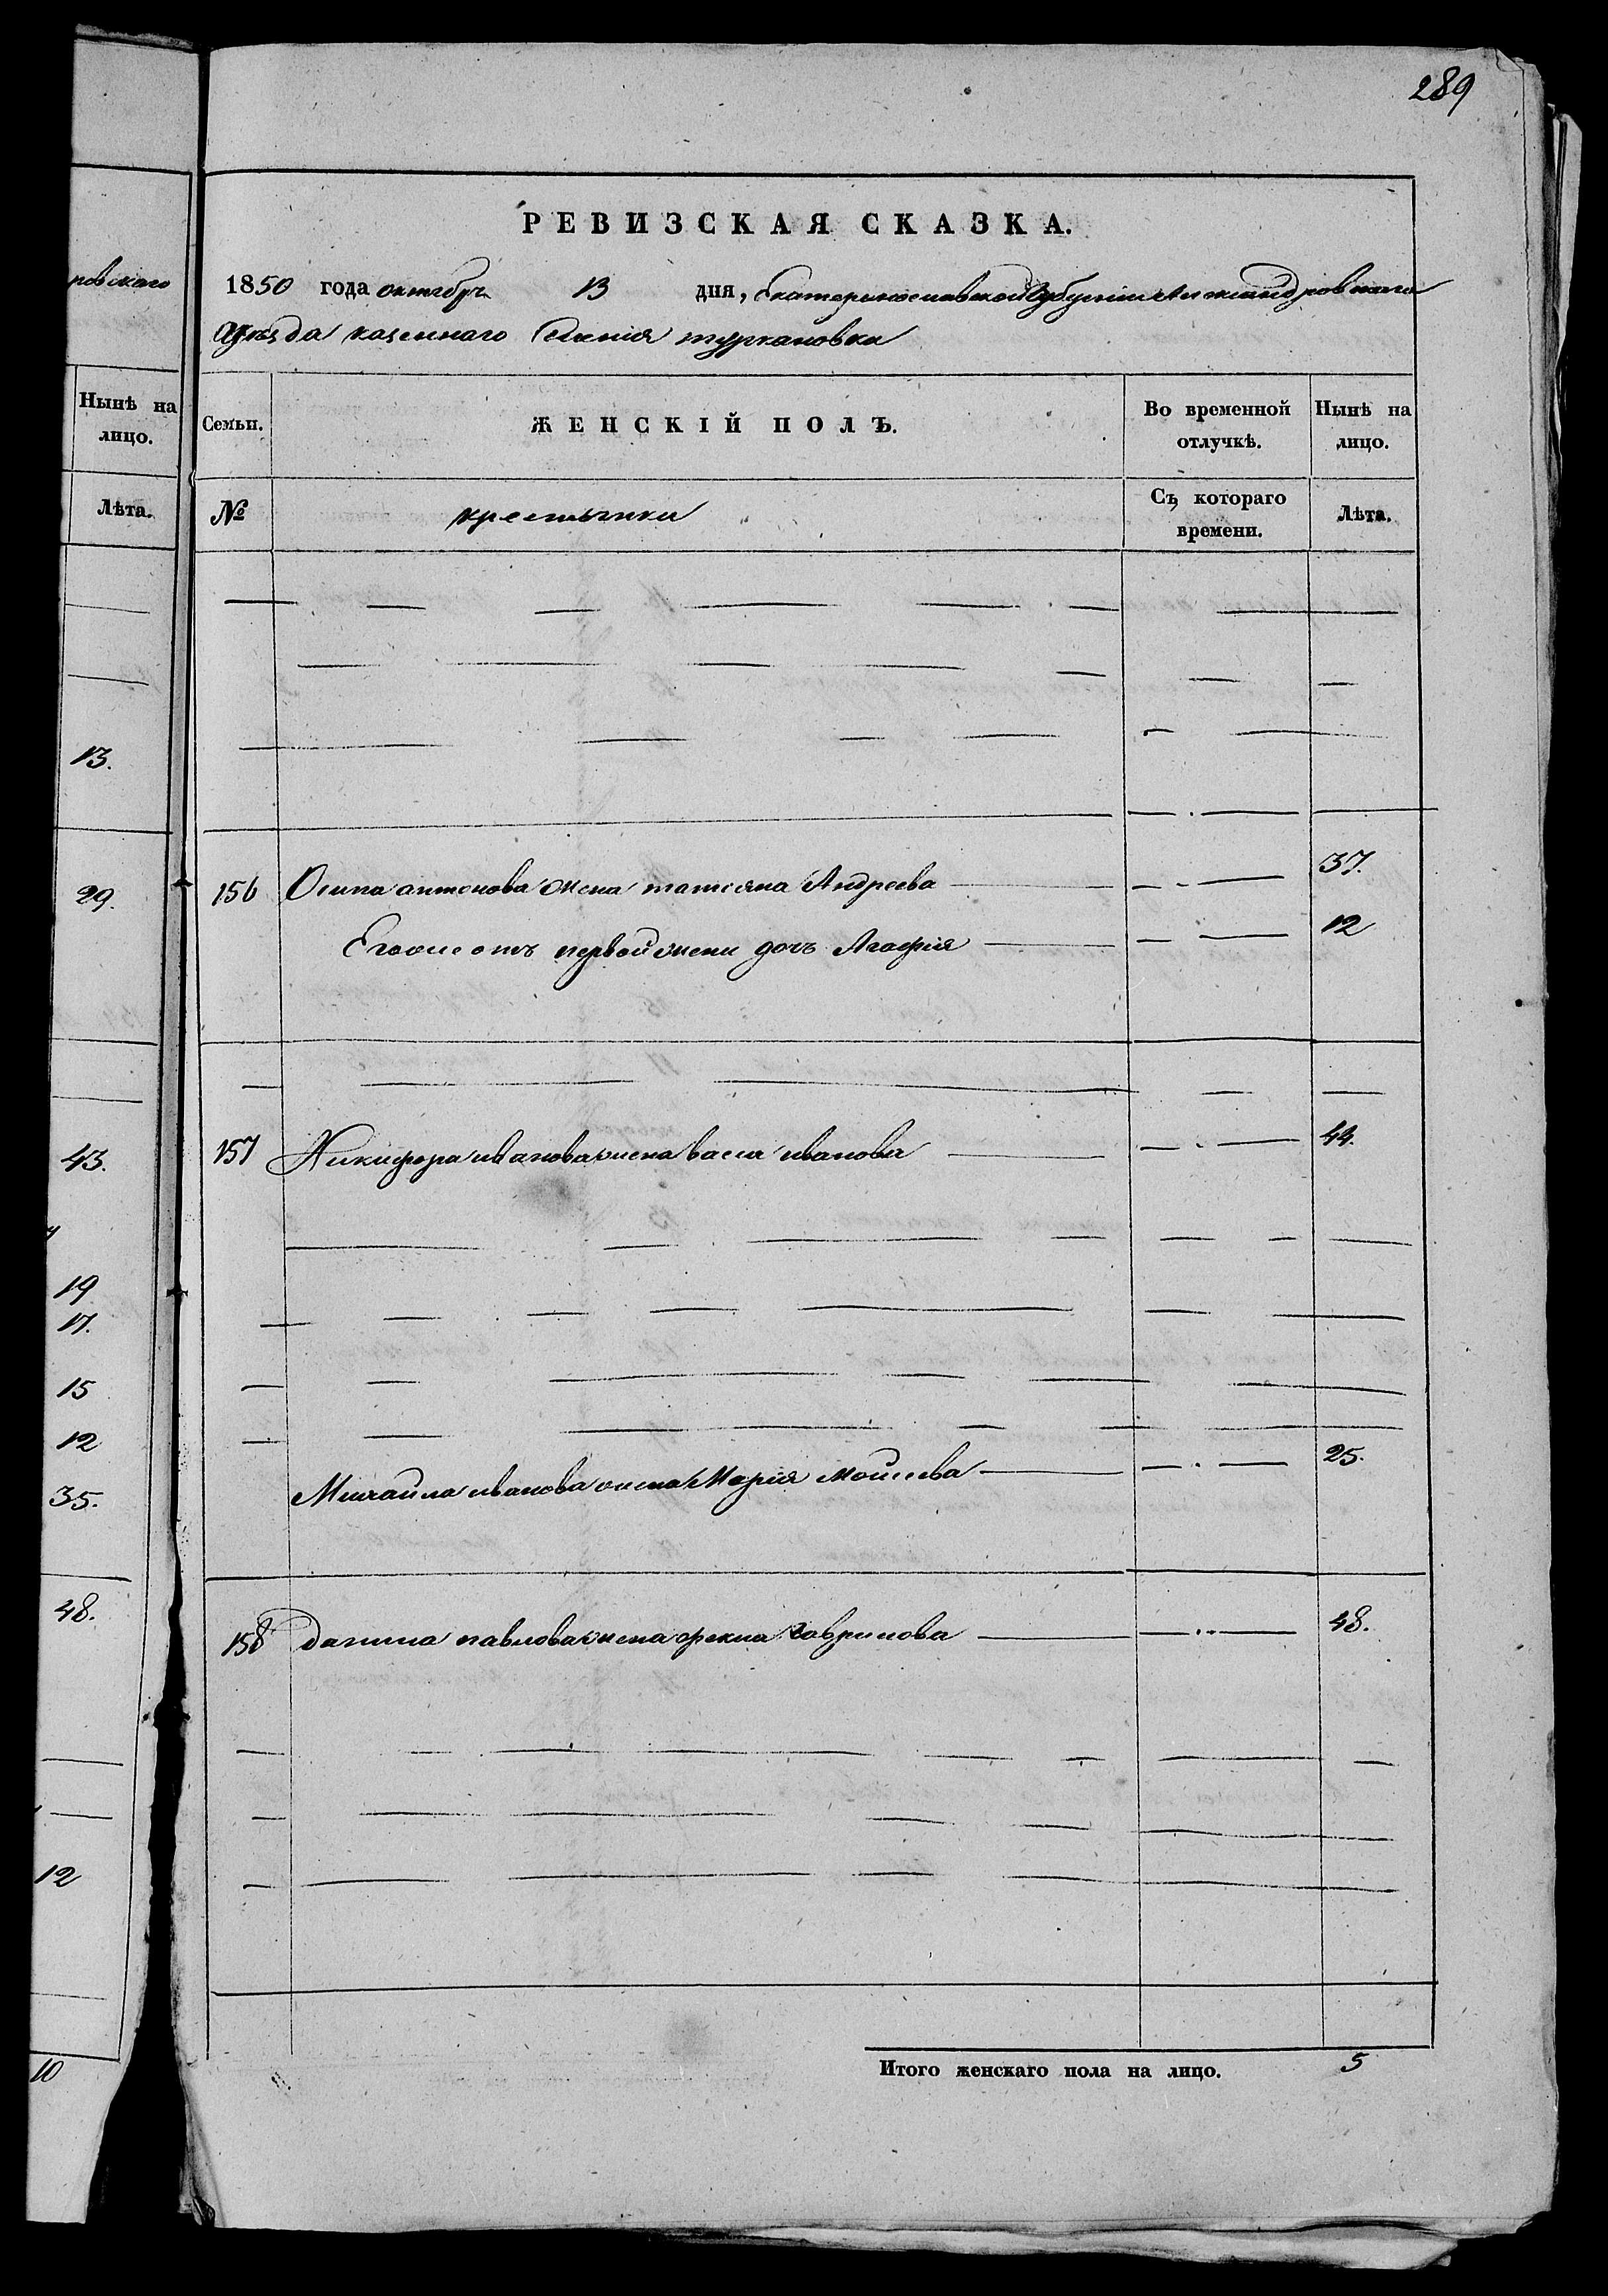 289
РЕВИЗСКАЯ СКАЗКА.
ровскаго
1850 года октябрь 13 дня, Екатеринославской Губерніи Александровскаго
Уезда казеннаго Селенія туркановки
Нынѣ на лицо.
Лѣта.
Семьи. ЖЕНСКІЙ ПОЛЪ. Во временной отлучкѣ. Нынѣ на лицо.
№ крестьянки Съ котораго времени. Лѣта.
13.
29.
156 Осипа антонова жена татіяна Андреева 37.
Егоже отъ первой жены дочь Агафія 12
43.
157 Никифора иванова жена васса иванова 44.
19
17.
15
12
35.
Михайла иванова жена Марія Моисеева 25.
48.
158 данила павлова жена фекла гаврилова 48.
12
10
Итого женскаго пола на лицо. 5